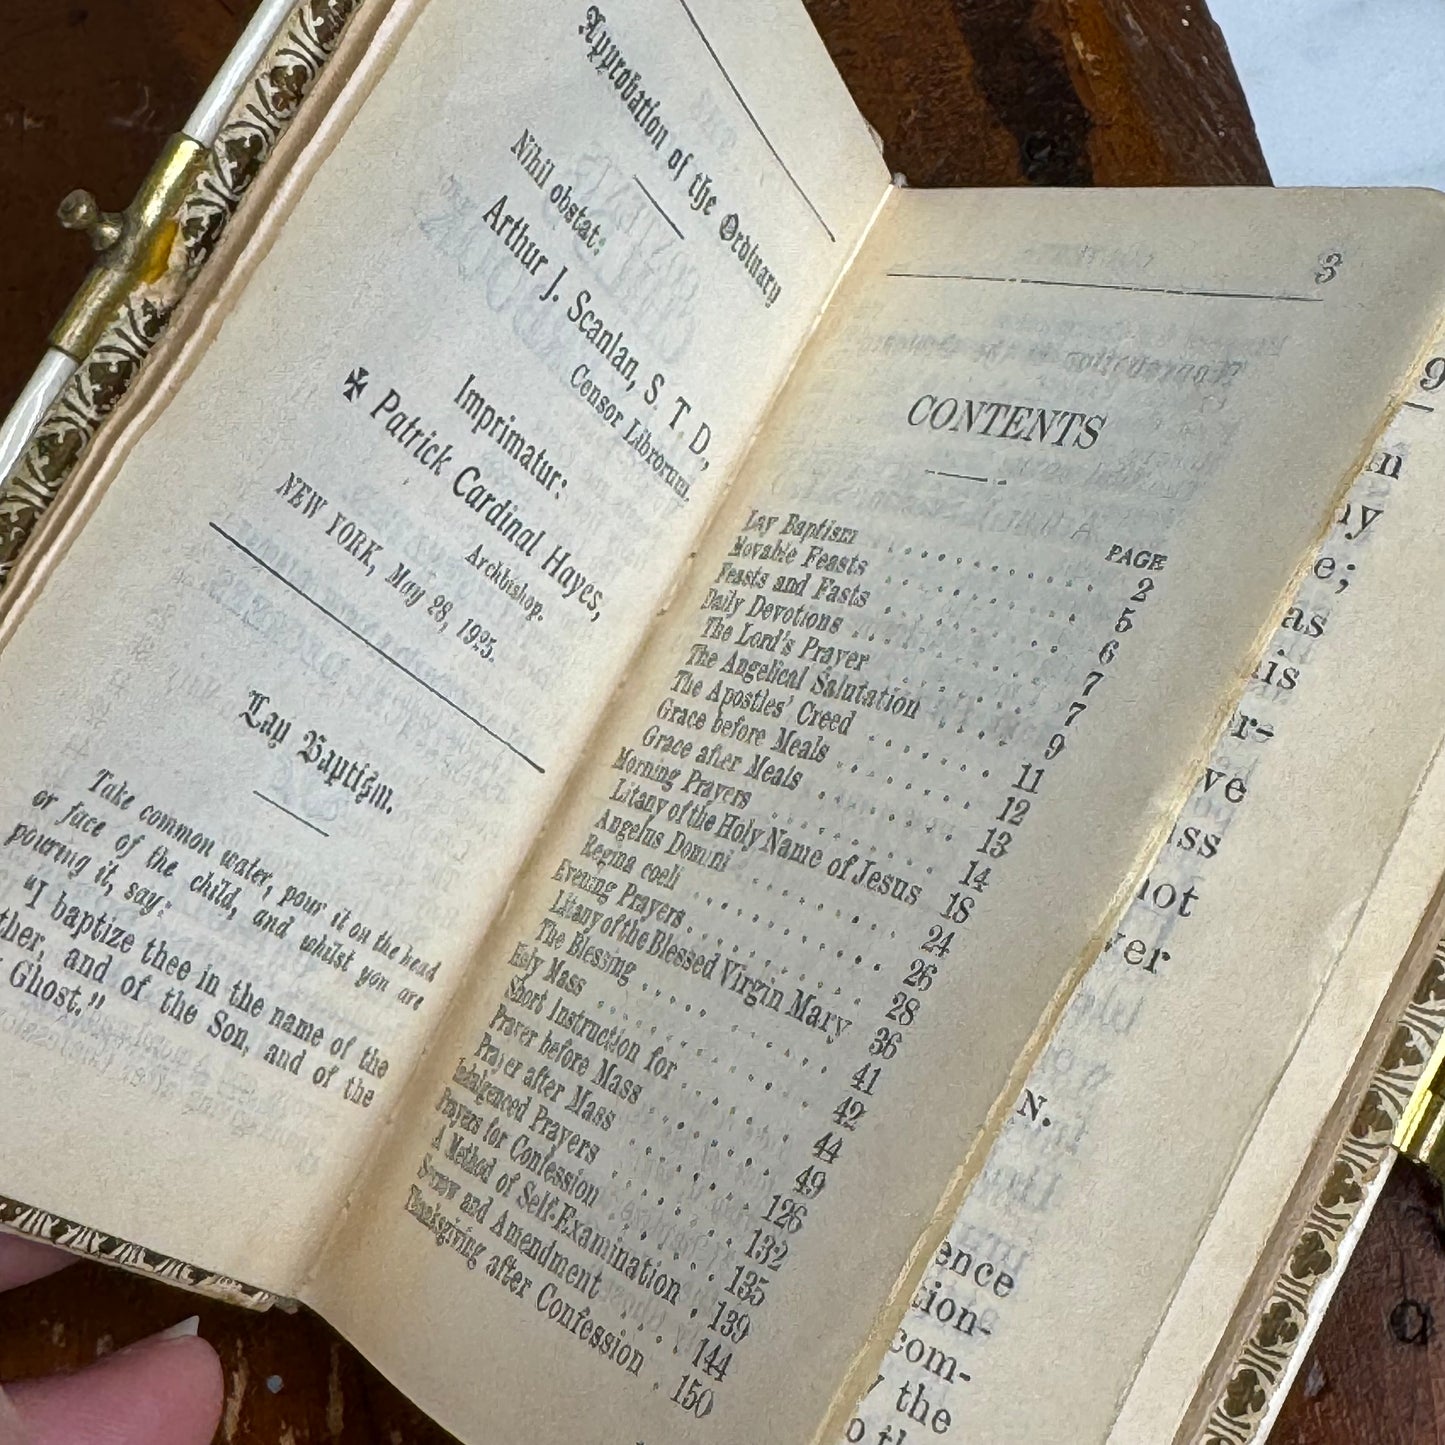 Approbation of the Ordinary
Nihil obstat:
Arthur J. Scanlan, S. T. D,
Censor Librorum.
Imprimatur:
✠ Patrick Cardinal Hayes,
Archbishop.
NEW YORK, May 28, 1925.
Lay Baptism.
Take common water, pour it on the head
or face of the child, and whilst you are
pouring it, say:
"I baptize thee in the name of the
ther, and of the Son, and of the
Ghost."
3
CONTENTS
PAGE
Lay Baptism . . . . . . . . . . 2
Movable Feasts . . . . . . . . . . 5
Feasts and Fasts . . . . . . . . . . 6
Daily Devotions . . . . . . . . . . 7
The Lord's Prayer . . . . . . . . 7
The Angelical Salutation . . . . . 9
The Apostles' Creed . . . . . . . 11
Grace before Meals . . . . . . . 12
Grace after Meals . . . . . . . . 13
Morning Prayers . . . . . . . . . 14
Litany of the Holy Name of Jesus 18
Angelus Domini . . . . . . . . . 24
Regina coeli . . . . . . . . . . 26
Evening Prayers . . . . . . . . . 28
Litany of the Blessed Virgin Mary 36
The Blessing . . . . . . . . . . 41
Holy Mass . . . . . . . . . . 42
Short Instruction for . . . . . . . 44
Prayer before Mass . . . . . . . 49
Prayer after Mass . . . . . . . . 126
Indulgenced Prayers . . . . . . . 132
Prayers for Confession . . . . . . 135
A Method of Self-Examination . 139
Sorrow and Amendment . . . . 144
Thanksgiving after Confession . 150
9
in
ny
e;
as
his
er-
ve
ass
not
ver
N.
ence
tion-
com-
the